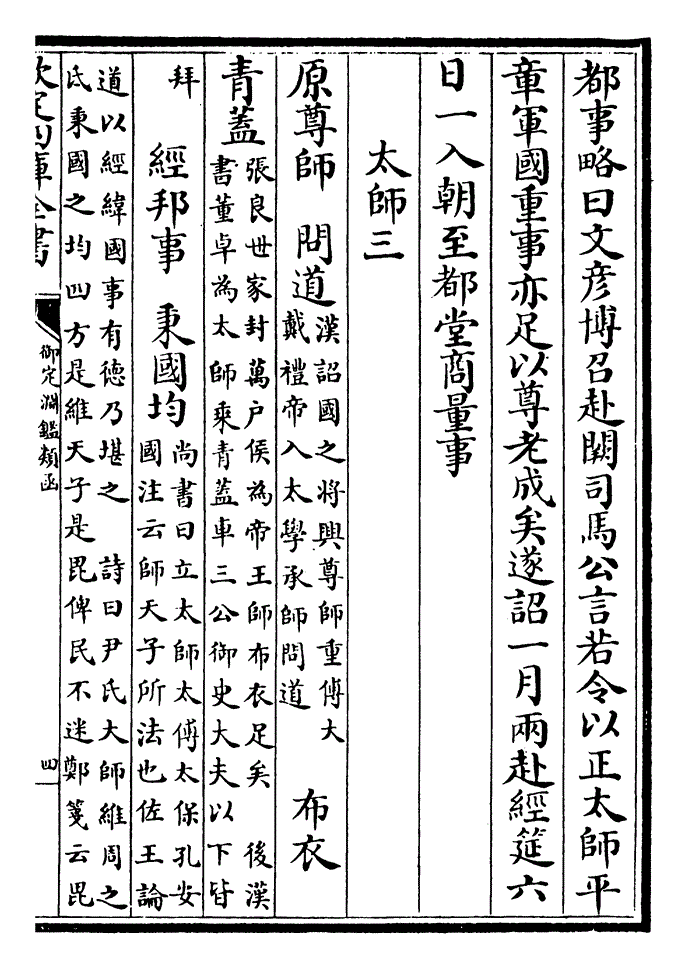 都事略曰文彥博召赴闕司馬公言若令以正太師平
章軍國重事亦足以尊老成矣遂詔一月兩赴經筵六
日一入朝至都堂商量事
太師三
原尊師 問道 漢詔國之將興尊師重傅大
戴禮帝入太學承師問道 布衣
青蓋 張良世家封萬户侯為帝王師布衣足矣 後漢
書董卓為太師乘青蓋車三公御史大夫以下皆
拜 經邦事 秉國均 尚書曰立太師太傅太保孔安
國注云師天子所法也佐王論
道以經緯國事有德乃堪之 詩曰尹氏大師維周之
氐秉國之均四方是維天子是毘俾民不迷鄭箋云毘
欽定四庫全書
御定淵鑑類函
四